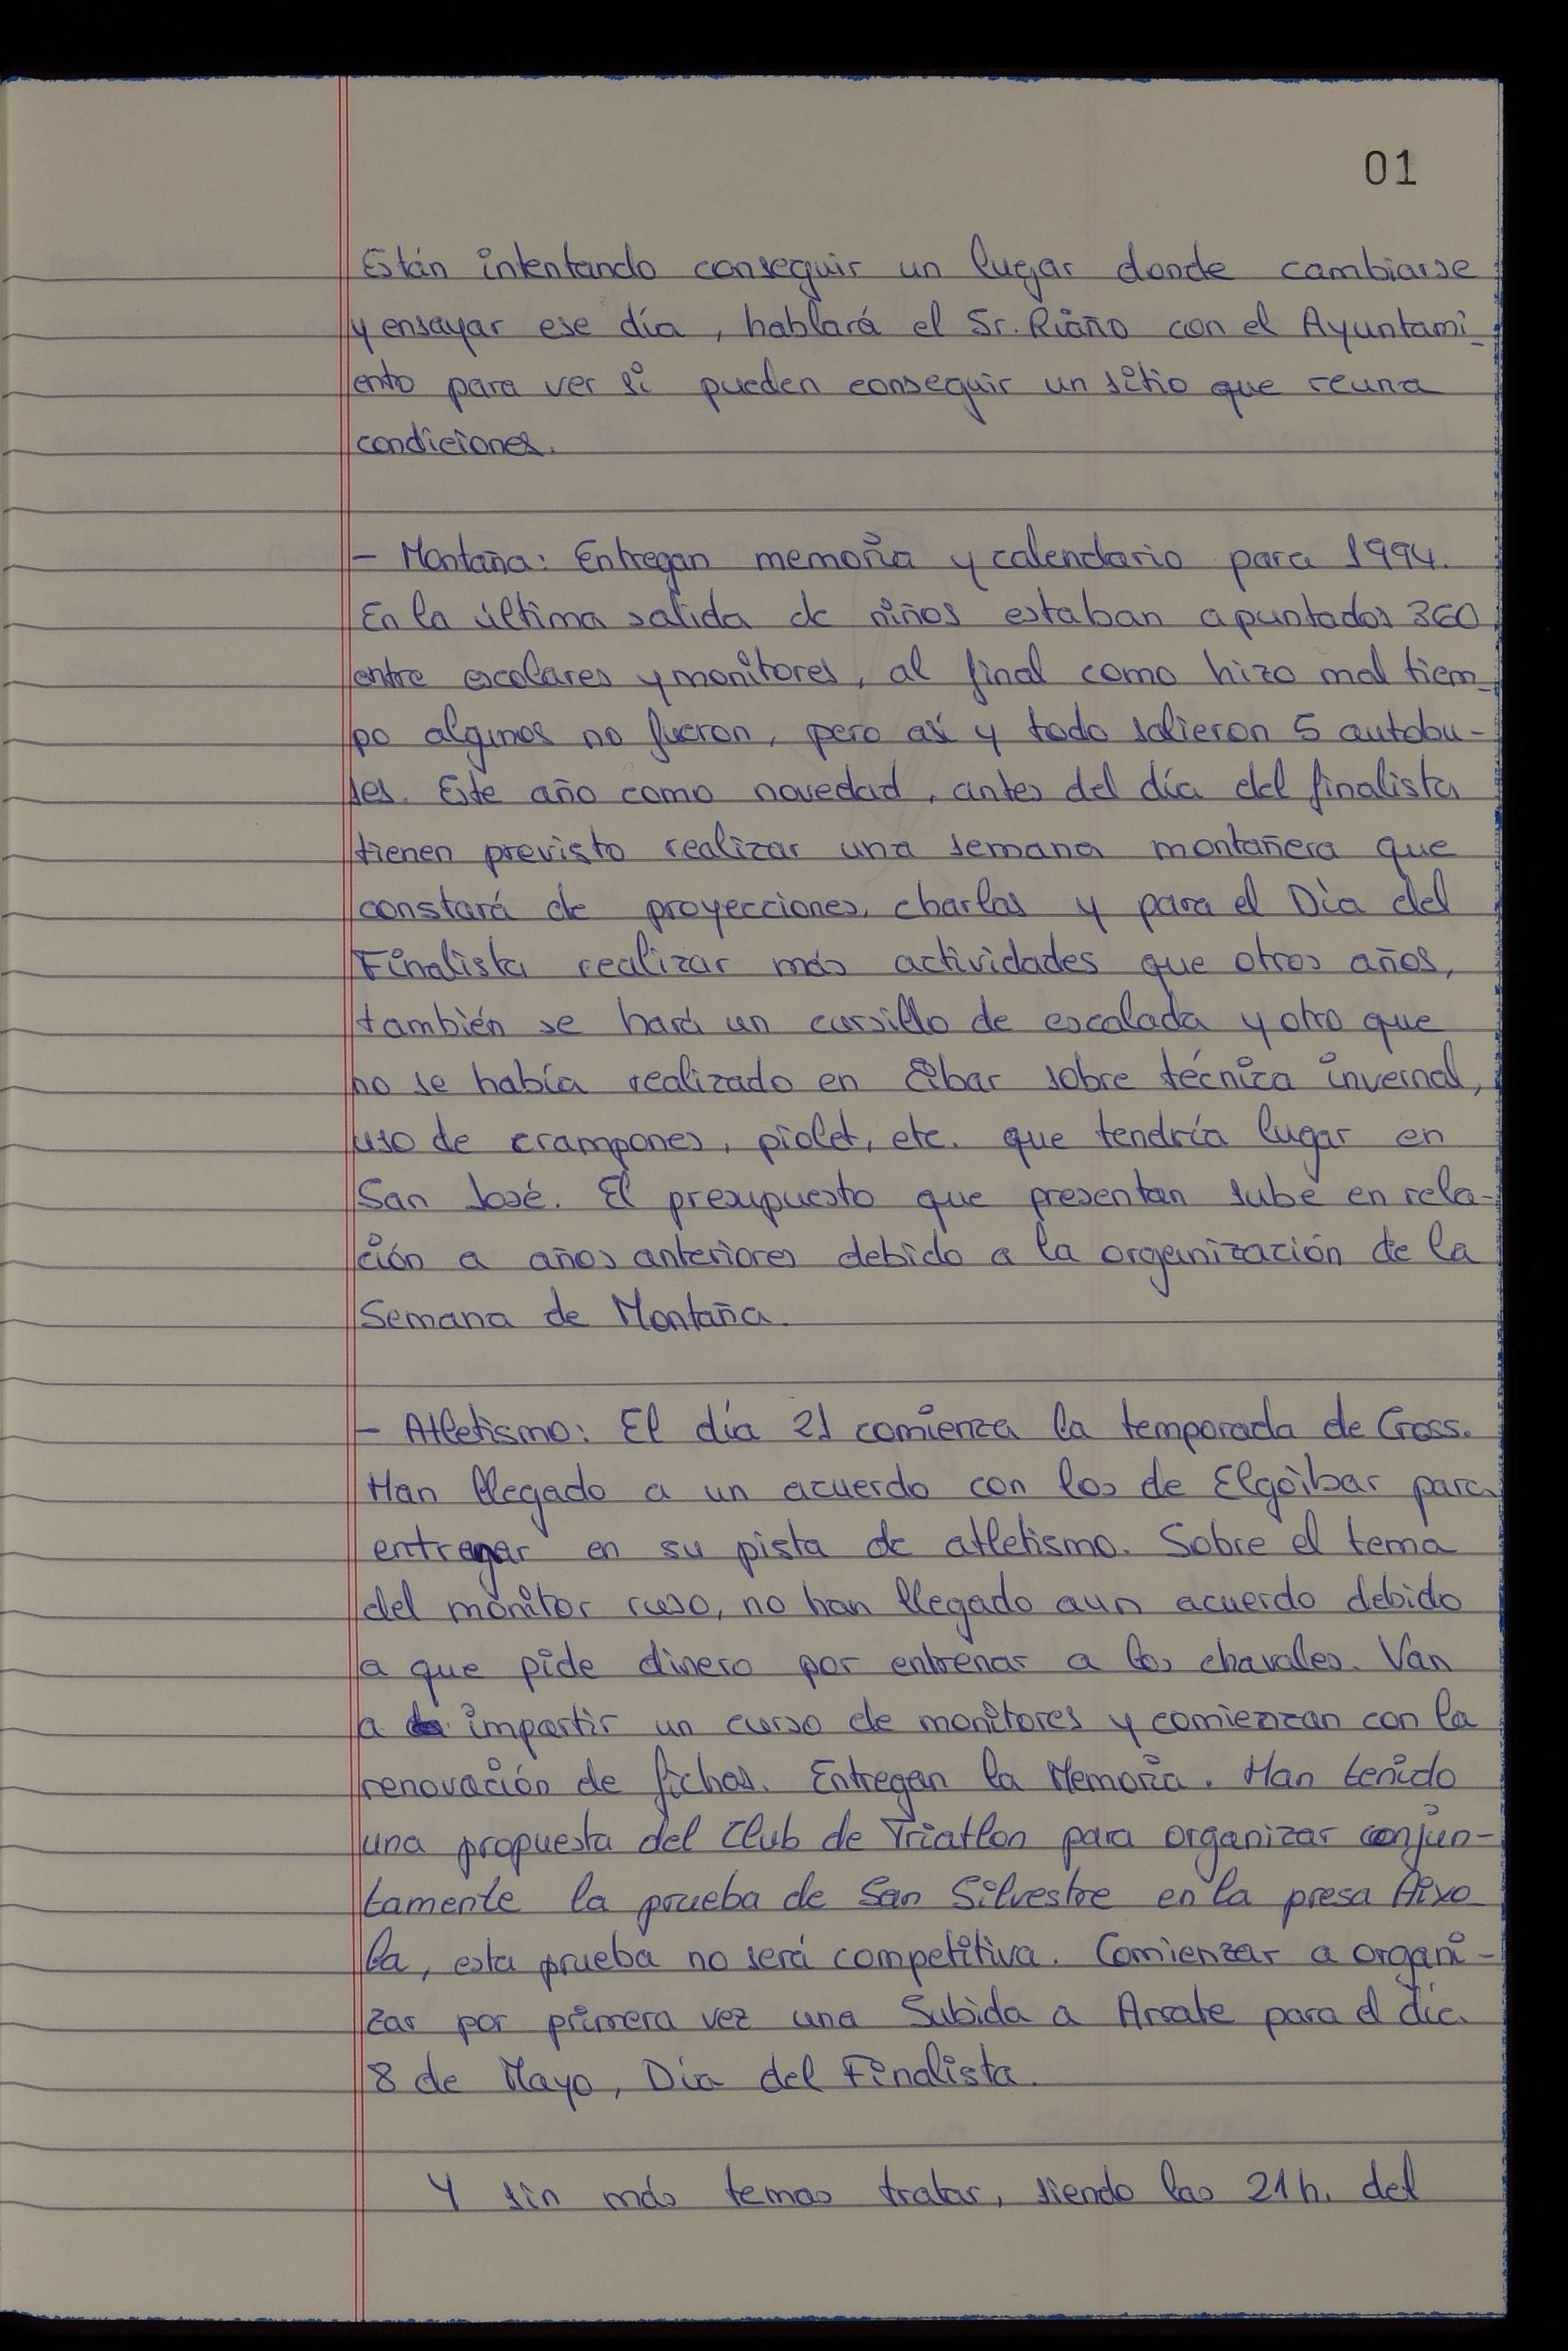 01
Están intentando conseguir un lugar donde cambiarse
y ensayar ese día, hablará el Sr. Riaño con el Ayuntami_
ento para ver si pueden conseguir un sitio que reuna
condiciones.
- Montaña: Entregan memoria y calendario para 1994.
En la última salida de niños estaban apuntados 360
entre escolares y monitores, al final como hizo mal tiem_
po algunos no fueron, pero así y todo salieron 5 autobu-
ses. Este año como novedad, antes del día del finalista
tienen previsto realizar una semana montañera que
constará de proyecciones, charlas y para el Día del
Finalista realizar más actividades que otros años,
también se hará un cursillo de escalada y otro que
no se había realizado en Eibar sobre técnica invernal,
uso de crampones, piolet, etc. que tendría lugar en
San José. El presupuesto que presentan sube en rela-
ción a años anteriores debido a la organización de la
Semana de Montaña.
- Atletismo: El día 21 comienza la temporada de Cross.
Han llegado a un acuerdo con los de Elgoibar para
entrenar en su pista de atletismo. Sobre el tema
del monitor ruso, no han llegado aun acuerdo debido
a que pide dinero por entrenar a los chavales. Van
a impartir un curso de monitores y comienzan con la
renovación de fichas. Entregan la Memoria. Han tenido
una propuesta del Club de Triatlon para organizar conjun-
tamente la prueba de San Silvestre en la presa Aixo
la, esta prueba no será competitiva. Comienzar a organi-
zar por primera vez una Subida a Arrate para el día
8 de Mayo, Día del Finalista.
Y sin más temas tratar, siendo las 21h. del